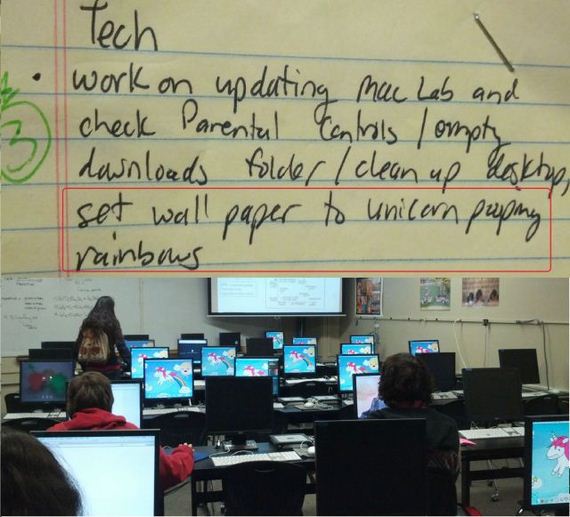 Tech
• work on updating mac Lab and
check Parental Controls / empty
downloads folder / clean up desktop,
set wall paper to unicorn pooping
rainbows
3